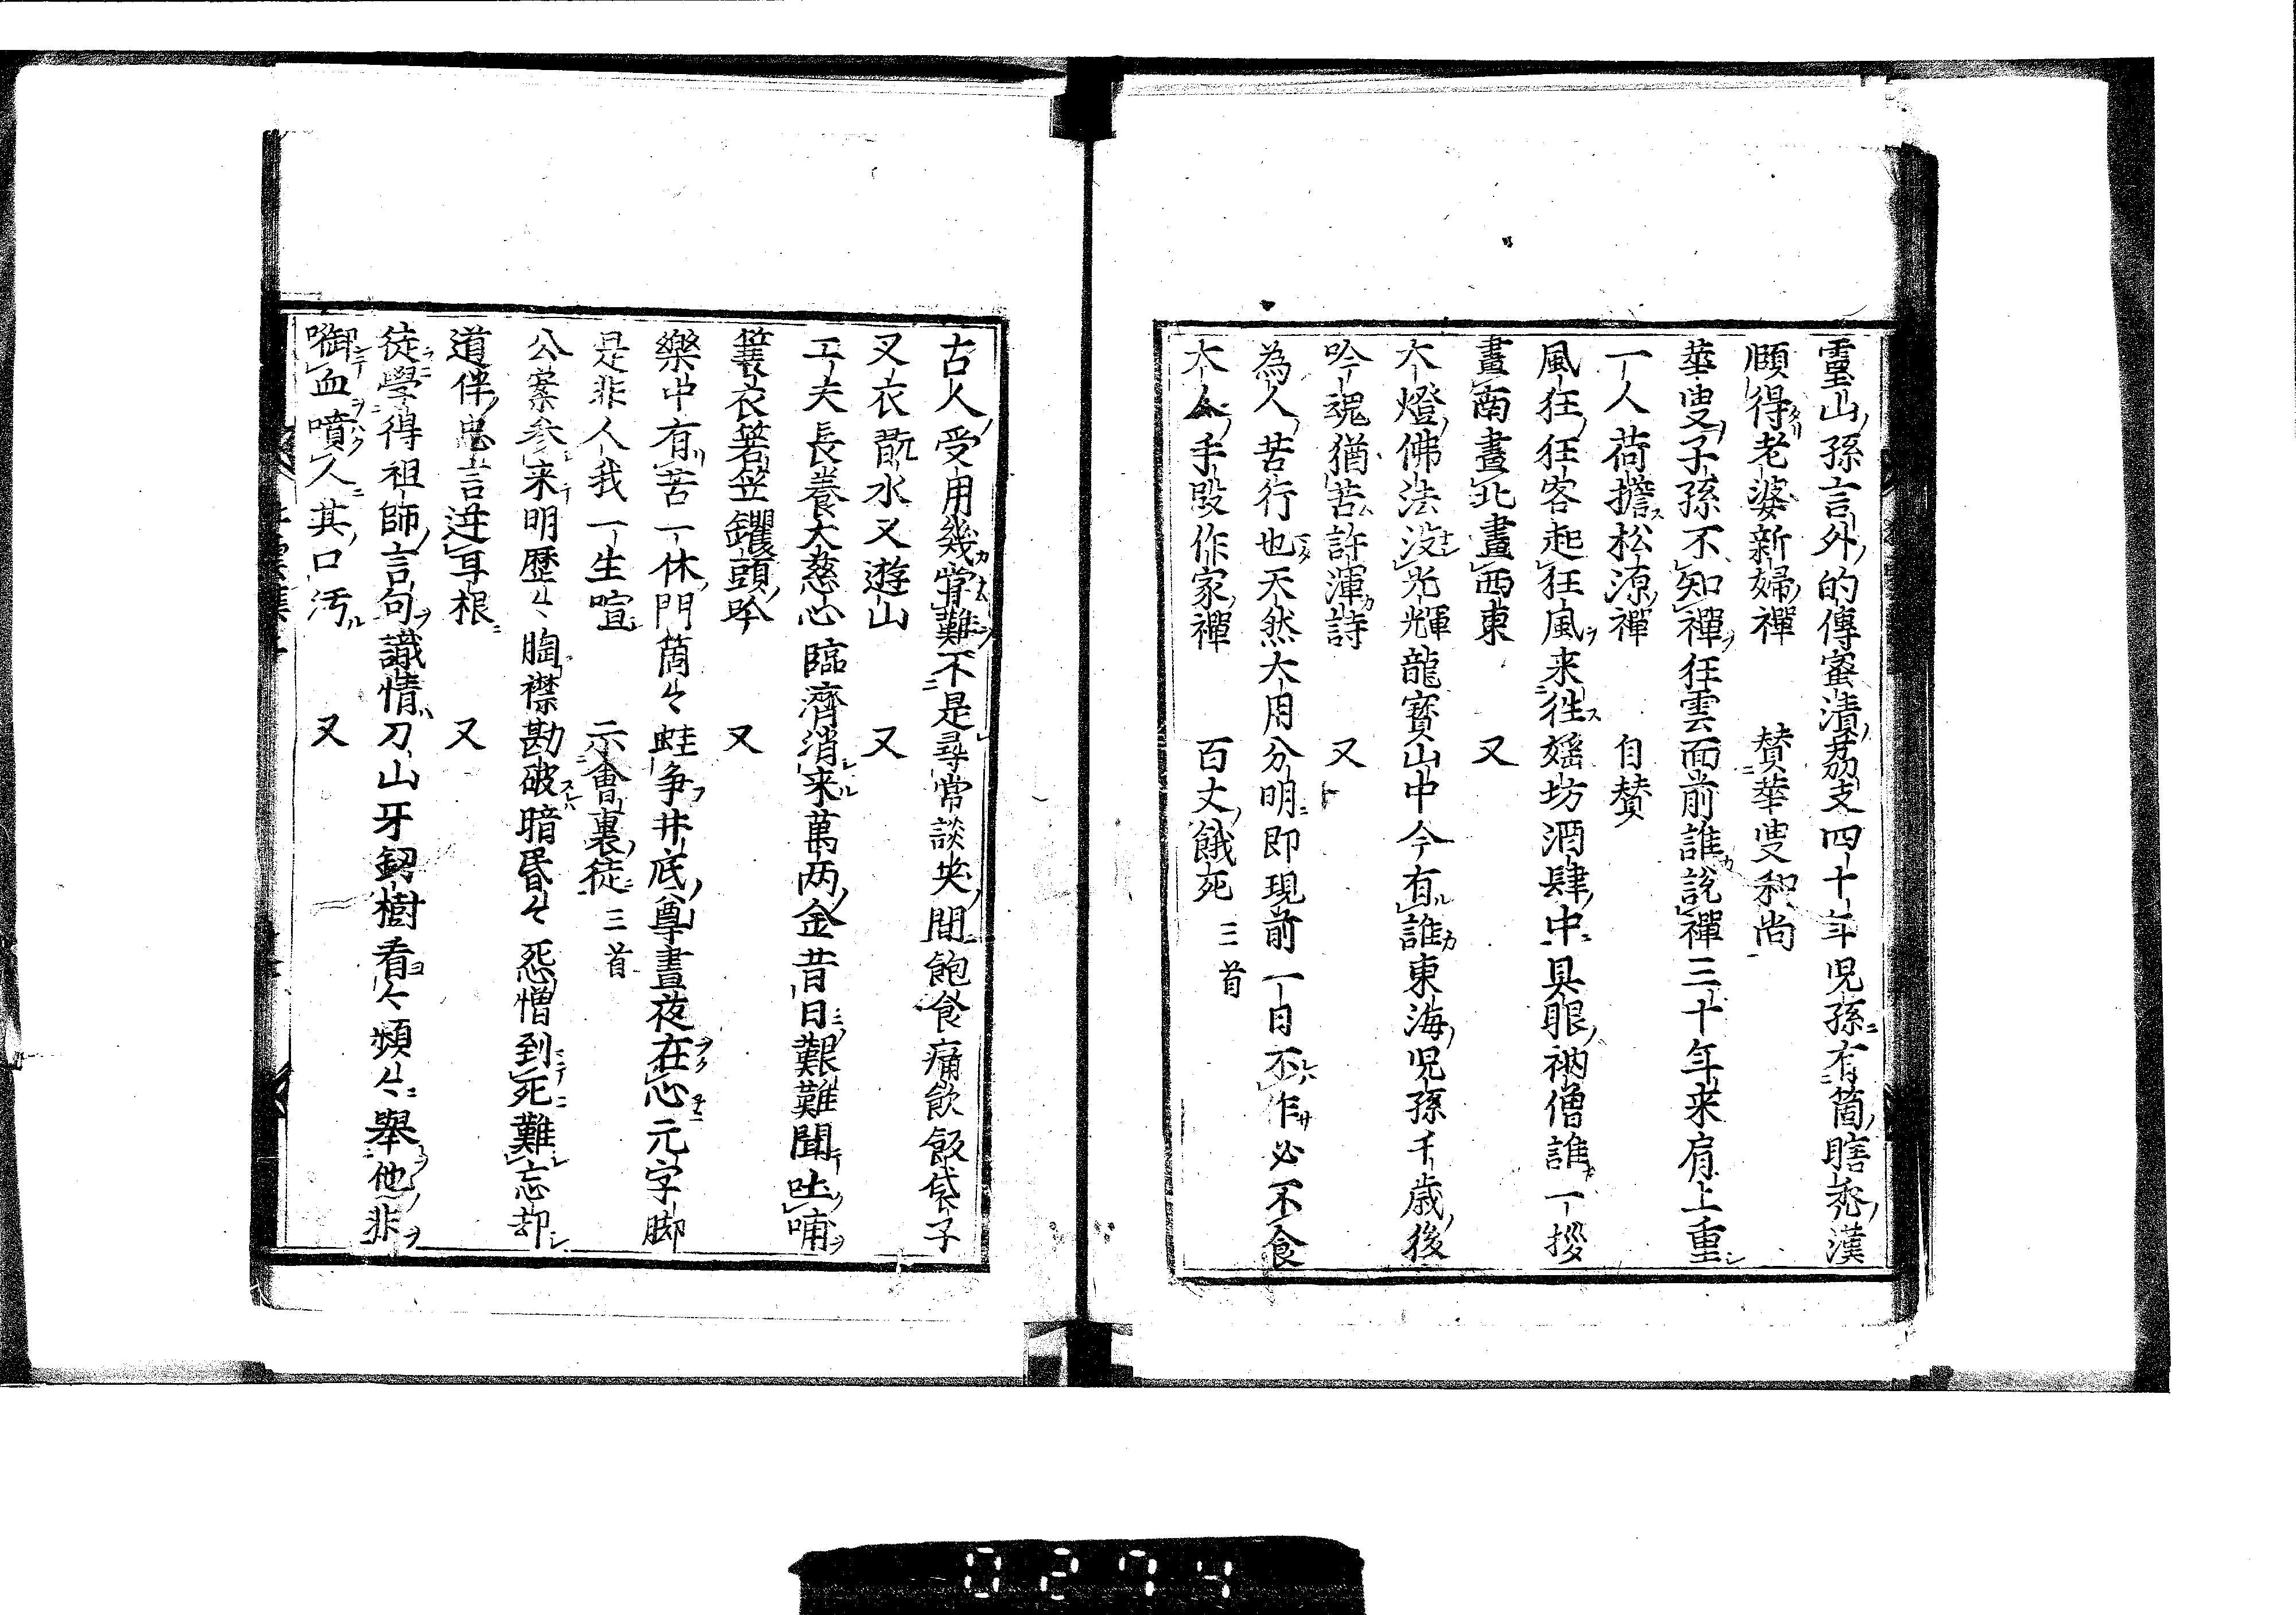 靈山孫言外的傳蜜漬茘支四十年児孫有箇瞎禿漢
頋得老婆新婦禪　賛華叟和尚
華叟子孫不知禪狂雲面前誰說禪三十年来肩上重
一人荷擔松源禪　自賛
風狂狂客起狂風来徃婬坊酒肆中具眼衲僧誰一拶
畫南畫北畫西東　又
大燈佛法没光輝龍寳山中今有誰東海児孫千歳後
吟魂猶苦許渾詩　又
為人苦行也天然大用分明即現前一日不作必不食
大人手段作家禪　百丈餓死　三首
古人受用幾嘗難不是尋常談笑間飽食痛飲飯袋子
又衣翫水又遊山　又
工夫長養大慈心臨濟消来萬両金昔日艱難聞吐哺
簑衣箬笠钁頭吟　又
樂中有苦一休門箇々蛙争井底尊晝夜在心元字脚
是非人我一生喧　示會裏徒　三首
公案参来明歴々胸襟勘破暗昏々怨憎到死難忘却
道伴忠言逆耳根　又
徒學得祖師言句識情刀山牙釼樹看々頻々舉他非
啣血噴人其口汚　又
0294